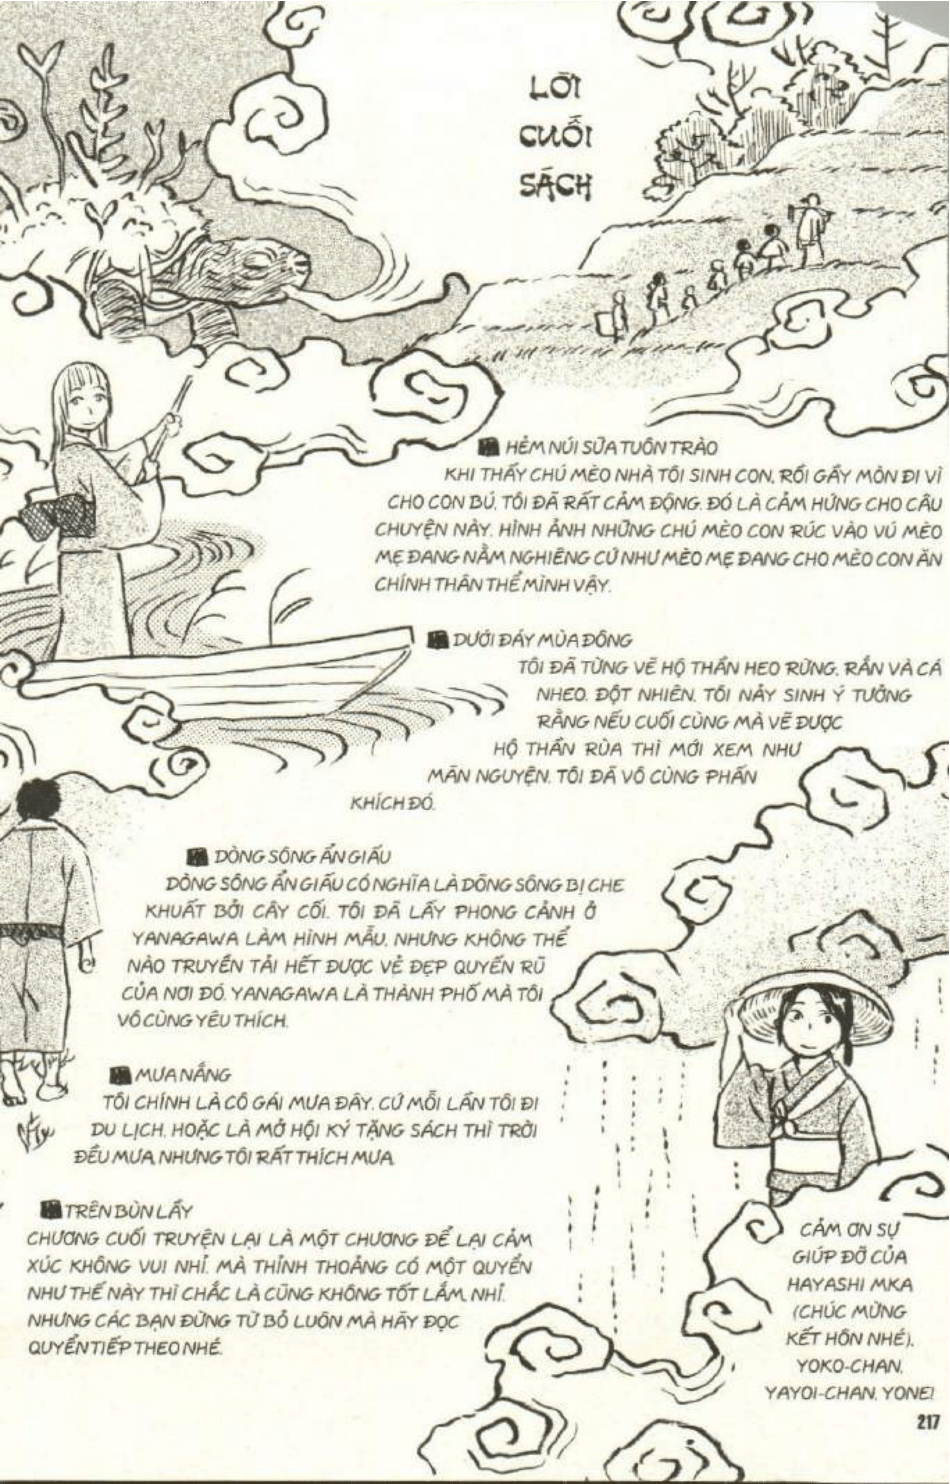 LỜI
CUỐI
SÁCH
HẺM NÚI SỮA TUÔN TRÀO
KHI THẤY CHÚ MÈO NHÀ TÔI SINH CON, RỒI GẦY MÒN ĐI VÌ
CHO CON BÚ, TÔI ĐÃ RẤT CẢM ĐỘNG. ĐÓ LÀ CẢM HỨNG CHO CÂU
CHUYỆN NÀY. HÌNH ẢNH NHỮNG CHÚ MÈO CON RÚC VÀO VÚ MÈO
MẸ ĐANG NẰM NGHIÊNG CỨ NHƯ MÈO MẸ ĐANG CHO MÈO CON ĂN
CHÍNH THÂN THỂ MÌNH VẬY.
DƯỚI ĐÁY MÙA ĐÔNG
TÔI ĐÃ TỪNG VẼ HỘ THẦN HEO RỪNG, RẮN VÀ CÁ
NHEO. ĐỘT NHIÊN, TÔI NẢY SINH Ý TƯỞNG
RẰNG NẾU CUỐI CÙNG MÀ VẼ ĐƯỢC
HỘ THẦN RÙA THÌ MỚI XEM NHƯ
MÃN NGUYỆN. TÔI ĐÃ VÔ CÙNG PHẤN
KHÍCH ĐÓ.
DÒNG SÔNG ẨN GIẤU
DÒNG SÔNG ẨN GIẤU CÓ NGHĨA LÀ DÒNG SÔNG BỊ CHE
KHUẤT BỞI CÂY CỐI. TÔI ĐÃ LẤY PHONG CẢNH Ở
YANAGAWA LÀM HÌNH MẪU, NHƯNG KHÔNG THỂ
NÀO TRUYỀN TẢI HẾT ĐƯỢC VẺ ĐẸP QUYẾN RŨ
CỦA NƠI ĐÓ. YANAGAWA LÀ THÀNH PHỐ MÀ TÔI
VÔ CÙNG YÊU THÍCH.
MƯA NẮNG
TÔI CHÍNH LÀ CÔ GÁI MƯA ĐÂY. CỨ MỖI LẦN TÔI ĐI
DU LỊCH, HOẶC LÀ MỞ HỘI KÝ TẶNG SÁCH THÌ TRỜI
ĐỀU MƯA. NHƯNG TÔI RẤT THÍCH MƯA.
TRÊN BÙN LẦY
CHƯƠNG CUỐI TRUYỆN LẠI LÀ MỘT CHƯƠNG ĐỂ LẠI CẢM
XÚC KHÔNG VUI NHỈ. MÀ THỈNH THOẢNG CÓ MỘT QUYỂN
NHƯ THẾ NÀY THÌ CHẮC LÀ CŨNG KHÔNG TỐT LẮM NHỈ.
NHƯNG CÁC BẠN ĐỪNG TỪ BỎ LUÔN MÀ HÃY ĐỌC
QUYỂN TIẾP THEO NHÉ.
CẢM ƠN SỰ
GIÚP ĐỠ CỦA
HAYASHI MKA
(CHÚC MỪNG
KẾT HÔN NHÉ),
YOKO-CHAN,
YAYOI-CHAN, YONE!
217